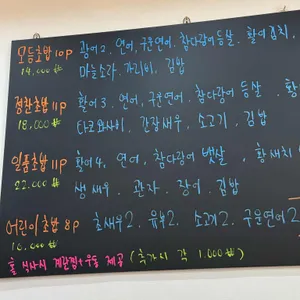 모듬초밥 10P 황어2. 연어, 구운연어. 참다랑어등살. 활어김치,
14,000₩ 마늘소라. 가리비. 김밥
정찬초밥 11P 황어3. 연어, 구운연어. 참다랑어등살. 황
18,000₩ 타코와사비, 간장새우. 소고기. 김밥
일품초밥 11P 황어4, 연어, 참다랑어 뱃살, 황새치
22,000₩ 생새우. 관자. 장어. 김밥
어린이초밥 8P 초새우2. 유부2. 소고기2. 구운연어2
10,000₩
홀 식사시 계란찜+우동 제공 (추가시 각 1,000₩)